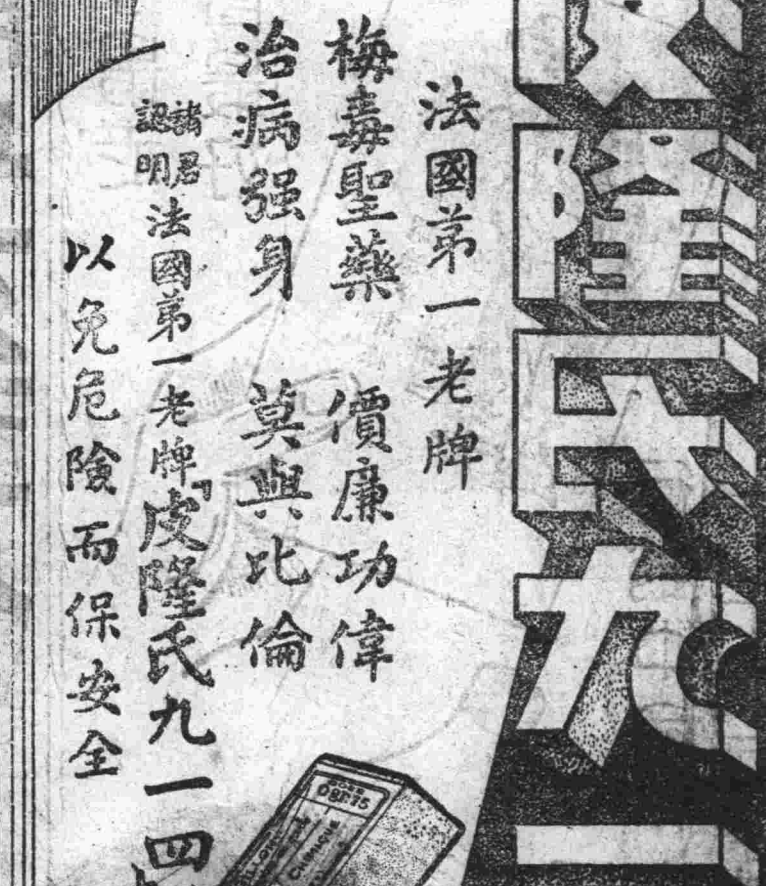 皮隆氏九一
法國第一老牌
梅毒聖藥 價廉功偉
治病强身 莫與比倫
諸君認明法國第一老牌「皮隆氏九一四
以免危險而保安全
CLINIQUE